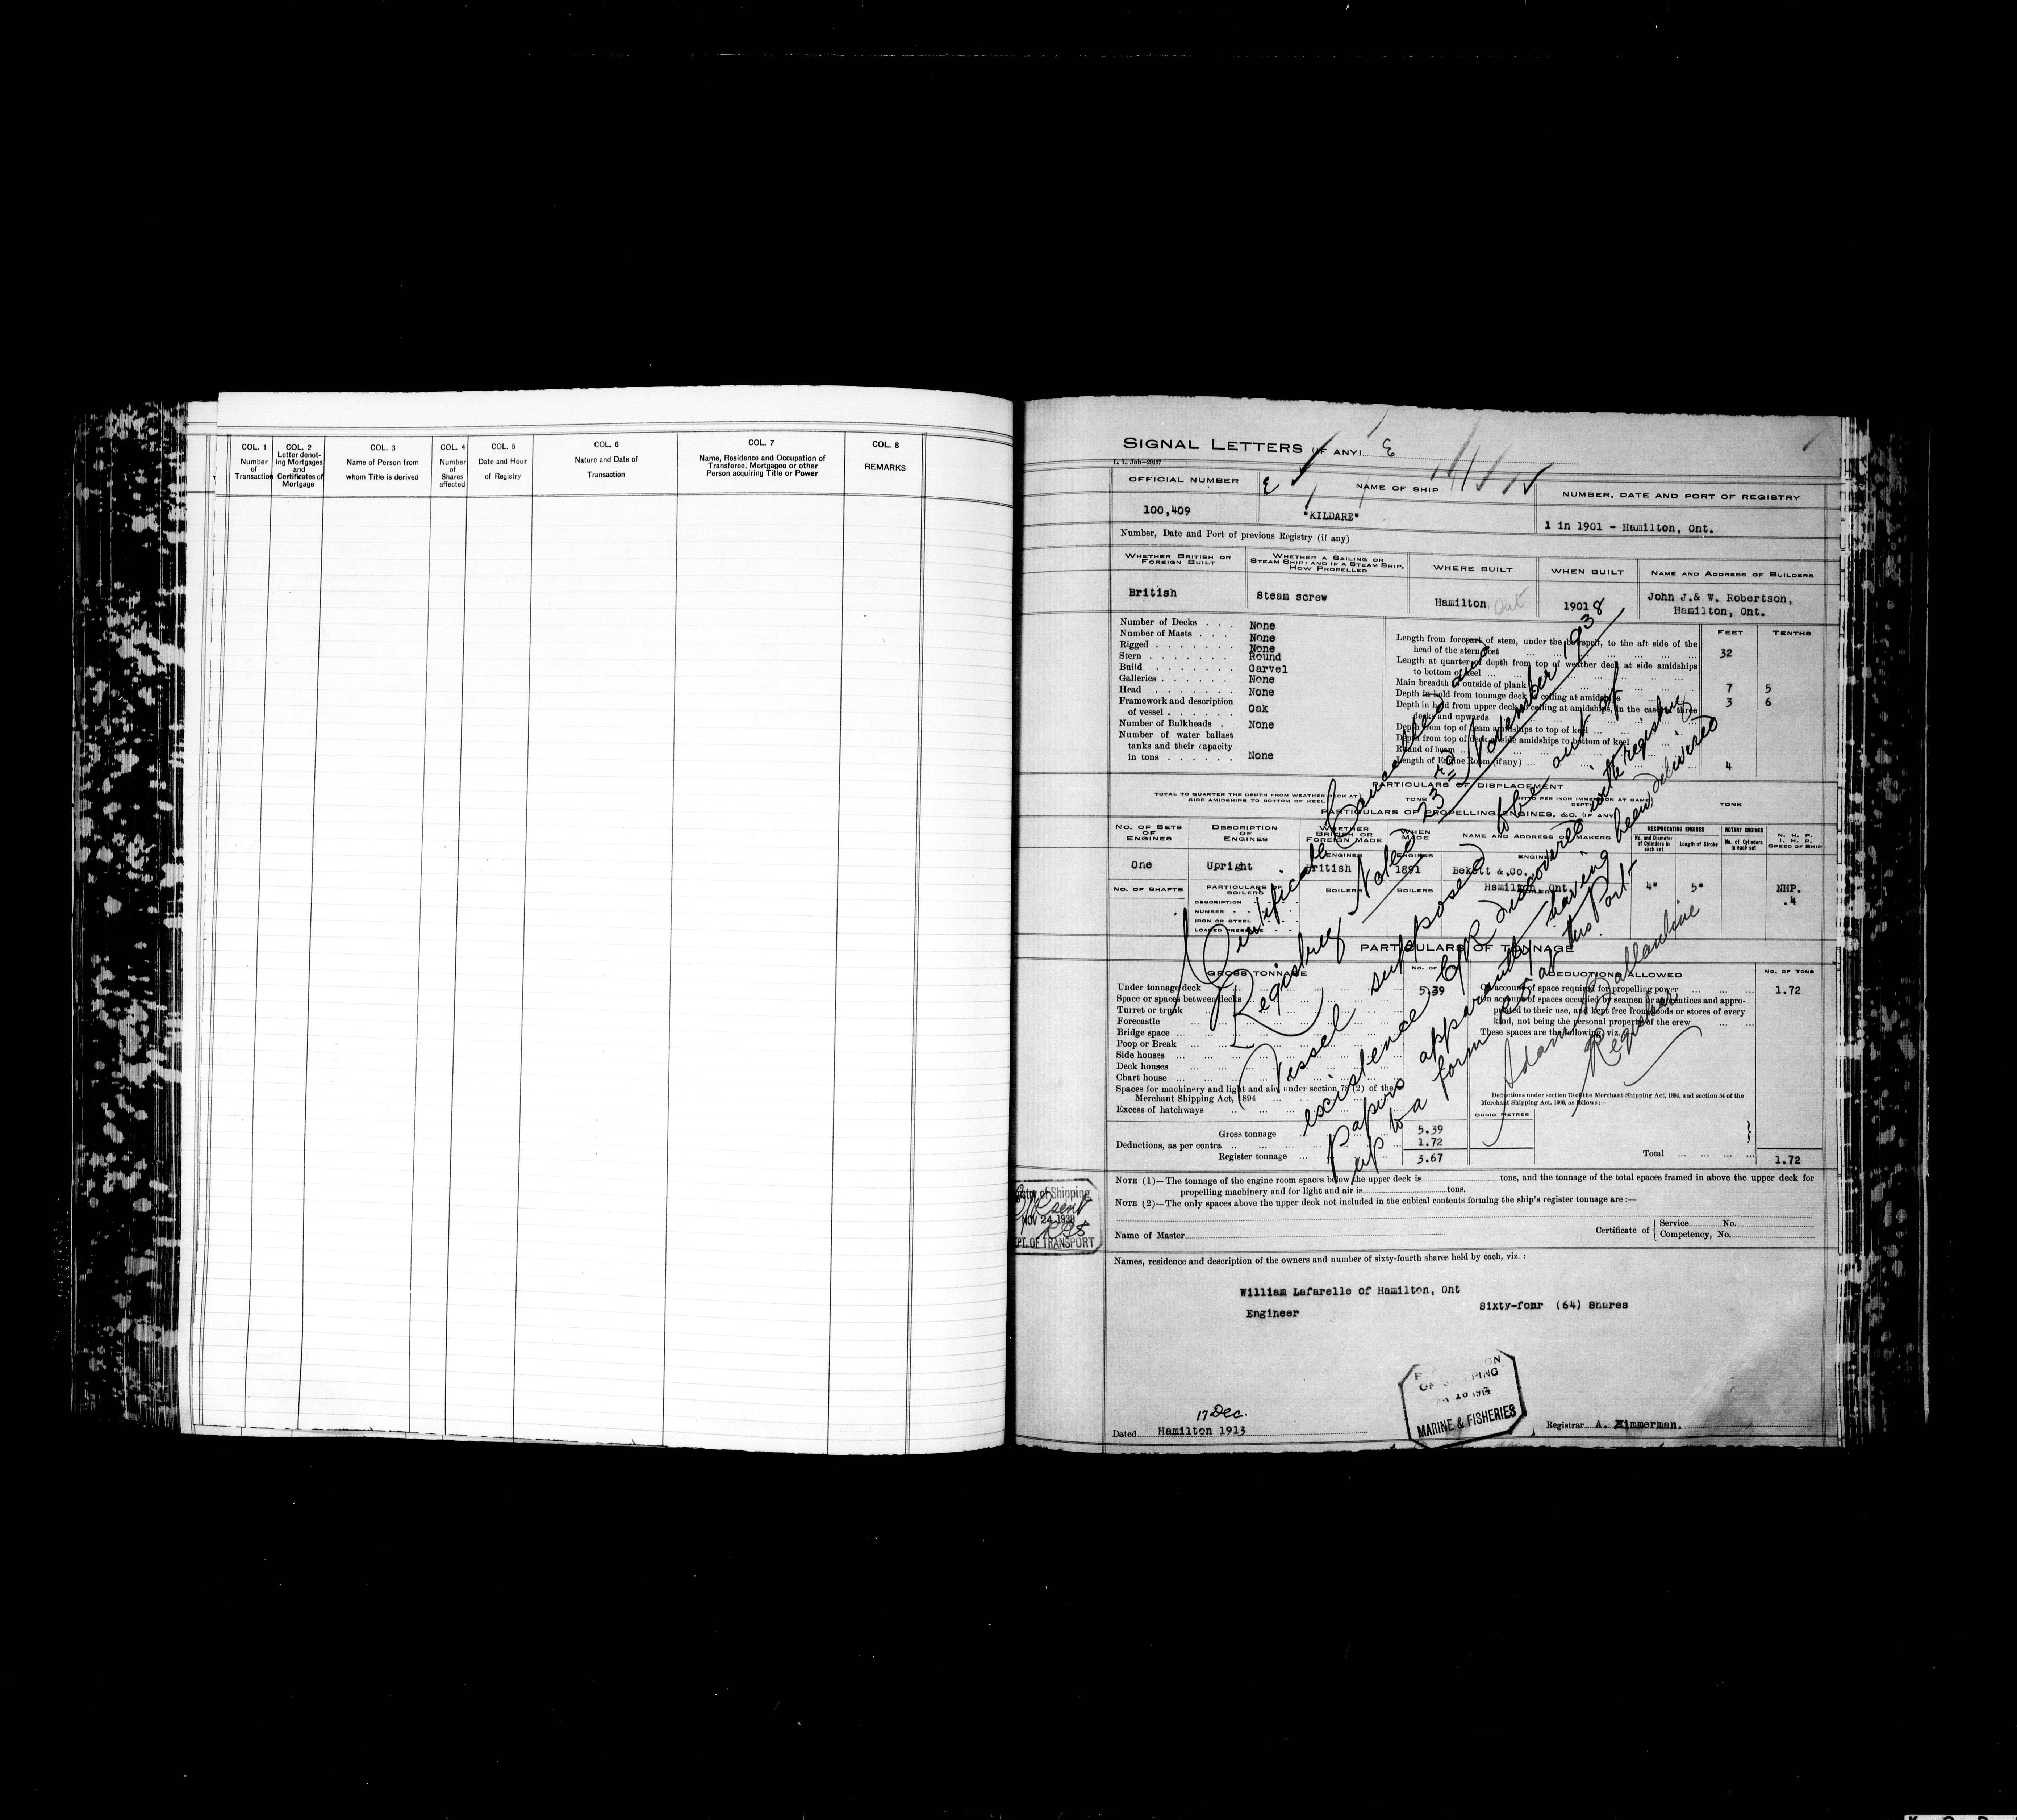 COL. 1
Number
of
Transaction
COL. 2
Letter denot-
ing Mortgages
and
Certificates of
Mortgage
COL. 3
Name of Person from
whom Title is derived
COL. 4
Number
of
Shares
affected
COL. 5
Date and Hour
of Registry
COL. 6
Nature and Date of
Transaction
COL. 7
Name, Residence and Occupation of
Transferee, Mortgagee or other
Person acquiring Title or Power
COL. 8
REMARKS
SIGNAL LETTERS (IF ANY)
OFFICIAL NUMBER
NAME OF SHIP
NUMBER, DATE AND PORT OF REGISTRY
100,409
"KILDARE"
1 in 1901 - Hamilton, Ont.
Number, Date and Port of previous Registry (if any)
WHETHER BRITISH OR
FOREIGN BUILT
WHETHER A SAILING OR
STEAM SHIP; AND IF A STEAM SHIP,
HOW PROPELLED
WHERE BUILT
WHEN BUILT
NAME AND ADDRESS OF BUILDERS
British
Steam screw
Hamilton Ont
1901
John J.& W. Robertson,
Hamilton, Ont.
Number of Decks . . . None
Number of Masts . . . None
Rigged . . . . . . . None
Stern . . . . . . . Round
Build . . . . . . . Carvel
Galleries . . . . . . None
Head . . . . . . . . None
Framework and description
of vessel . . . . . . Oak
Number of Bulkheads . None
Number of water ballast
tanks and their capacity
in tons . . . . . . None
FEET TENTHS
Length from forepart of stem, under the bowsprit, to the aft side of the
head of the stern post 32
Length at quarter of depth from top of weather deck at side amidships
to bottom of keel
Main breadth to outside of plank 7 5
Depth in hold from tonnage deck to ceiling at amidships 3 6
Depth in hold from upper deck to ceiling at amidships, in the case of three
decks and upwards
Depth from top of beam amidships to top of keel
Depth from top of deck at side amidships to bottom of keel
Round of beam
Length of Engine Room (if any) 4
PARTICULARS OF DISPLACEMENT
TOTAL TO QUARTER THE DEPTH FROM WEATHER DECK AT
SIDE AMIDSHIPS TO BOTTOM OF KEEL
TONS
DITTO PER INCH IMMERSION AT SAME
DEPTH
TONS
PARTICULARS OF PROPELLING ENGINES, &C. (IF ANY)
NO. OF SETS
OF
ENGINES
DESCRIPTION
OF
ENGINES
WHETHER
BRITISH OR
FOREIGN MADE
WHEN
MADE
NAME AND ADDRESS OF MAKERS
RECIPROCATING ENGINES
No. and Diameter
of Cylinders in
each set
Length of Stroke
ROTARY ENGINES
No. of Cylinders
in each set
N. H. P.
I. H. P.
SPEED OF SHIP
ENGINES
ENGINES
ENGINES
One
Upright
British
1891
Bekett & Co.
Hamilton, Ont
4"
5"
NHP.
.4
NO. OF SHAFTS
PARTICULARS OF
BOILERS
BOILERS
BOILERS
DESCRIPTION
NUMBER
IRON OR STEEL
LOADED PRESSURE
PARTICULARS OF TONNAGE
GROSS TONNAGE
NO. OF
DEDUCTIONS ALLOWED
NO. OF TONS
Under tonnage deck 5.39
Space or spaces between decks
Turret or trunk
Forecastle
Bridge space
Poop or Break
Side houses
Deck houses
Chart house
Spaces for machinery and light and air, under section 78 (2) of the
Merchant Shipping Act, 1894
Excess of hatchways
Gross tonnage 5.39
Deductions, as per contra 1.72
Register tonnage 3.67
On account of space required for propelling power 1.72
On account of spaces occupied by seamen or apprentices and appro-
priated to their use, and kept free from goods or stores of every
kind, not being the personal property of the crew
These spaces are the following, viz.
Deductions under section 79 of the Merchant Shipping Act, 1894, and section 54 of the
Merchant Shipping Act, 1906, as follows:—
CUBIC METRES
Total 1.72
Certificate Cancelled and
Registry Noted 23rd November 1938
Vessel supposed to be out of
existence
papers apparently having been delivered
up to a former at this Port
Adam Ballantine
Registrar
NOTE (1)—The tonnage of the engine room spaces below the upper deck is tons, and the tonnage of the total spaces framed in above the upper deck for
propelling machinery and for light and air is tons.
NOTE (2)—The only spaces above the upper deck not included in the cubical contents forming the ship's register tonnage are :—
Name of Master
Certificate of { Service No.
Competency, No.
of Shipping
NOV 24 1938
DEPT. OF TRANSPORT
Names, residence and description of the owners and number of sixty-fourth shares held by each, viz. :
William Lafarelle of Hamilton, Ont
Engineer
Sixty-four (64) Shares
MARINE & FISHERIES
17 Dec.
Dated Hamilton 1913
Registrar A. Zimmerman.